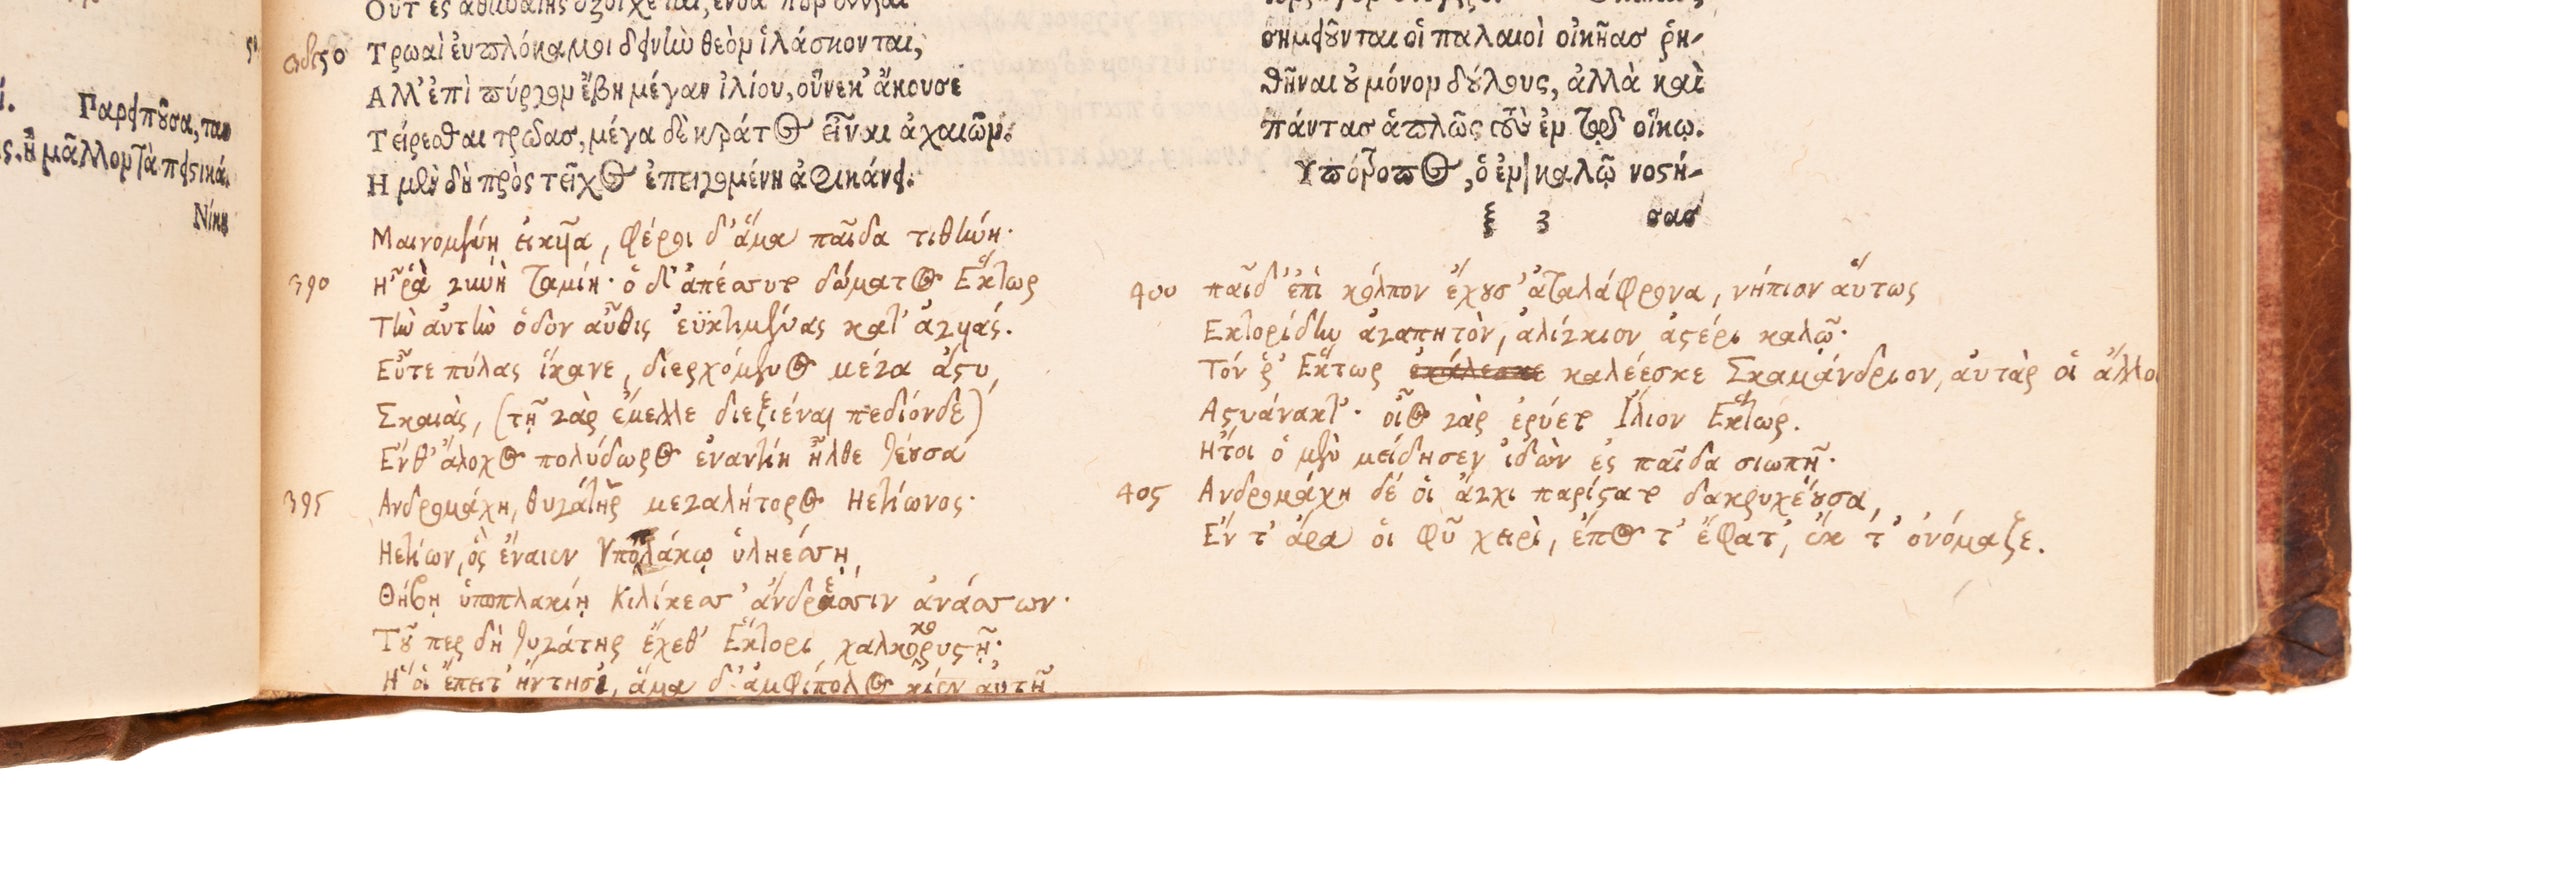 Γαρφποῦσα,
ἢ μᾶλλον τὰ
Νίκη
Τρωαὶ ἐϋπλόκαμοι δεινὴν θεὸν ἱλάσκονται,
Αλλ' ἐπὶ πύργον ἔβη μέγαν ἰλίου, οὕνεκ' ἄκουσε
Τείρεσθαι τρῶας, μέγα δὲ κράτος εἶναι ἀχαιῶν.
Η μὲν δὴ πρὸς τεῖχος ἐπειγομένη ἀφικάνει.
Μαινομένῃ εἰκῆα, φέρει δ' ἅμα παῖδα τιθήνη·
390 Η ῥὰ γυνὴ ταμίη· ὁ δ' ἀπέσσυτο δώματος Εκτωρ
Τὴν ἀυτὴν ὁδον αὖθις ἐϋκτιμένας κατ' ἀγυιάς.
Εὖτε πύλας ἵκανε, διερχόμενος μέγα ἄστυ,
Σκαιὰς, (τῇ γὰρ ἔμελλε διεξιέναι πεδίονδε)
Ενθ' ἄλοχος πολύδωρος ἐναντίη ἦλθε θέουσα
395 Ανδρομάχη, θυγάτηρ μεγαλήτορος Ηετίωνος·
Ηετίων, ὃς ἔναιεν Υποπλάκῳ ὑληέσσῃ,
Θήβῃ ὑποπλακίῃ Κιλίκεσσ' ἄνδρεσσιν ἀνάσσων·
Τοῦ περ δὴ θυγάτηρ ἔχεθ' Εκτορι χαλκοκορυστῇ·
Η οἱ ἔπειτ' ἤντησε, ἅμα δ' ἀμφίπολος κίεν αὐτῇ
σημειοῦνται οἱ παλαιοὶ οἰκῆας ῥη-
θῆναι οὐ μόνον δούλους, ἀλλὰ καὶ
πάντας ἁπλῶς τοὺς ἐν τῷ οἴκῳ.
Υπότροπος, ὁ ἐν κακῷ νοστή-
ξ 3 σας
400 παῖδ' ἐπὶ κόλπον ἔχουσ' ἀταλάφρονα, νήπιον αὕτως
Εκτορίδην ἀγαπητὸν, ἀλίγκιον ἀστέρι καλῷ·
Τόν ῥ' Εκτωρ ἐκάλεσκε καλέεσκε Σκαμάνδριον, ἀυτὰρ οἱ ἄλλοι
Αστυάνακτ'· οἶος γὰρ ἐρύετο Ιλιον Εκτωρ.
Ητοι ὁ μὲν μείδησεν ἰδὼν ἐς παῖδα σιωπῇ·
405 Ανδρομάχη δέ οἱ ἄγχι παρίστατο δακρυχέουσα,
Εν τ' ἄρα οἱ φῦ χειρὶ, ἔπος τ' ἔφατ', ἔκ τ' ὀνόμαζε.